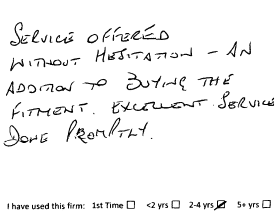 SERVICE OFFERED
WITHOUT HESITATION – AN
ADDITION TO BUYING THE
FITMENT. EXCELLENT SERVICE
DONE PROMPTLY.
I have used this firm: 1st Time ☐ <2 yrs ☐ 2-4 yrs ☑ 5+ yrs ☐